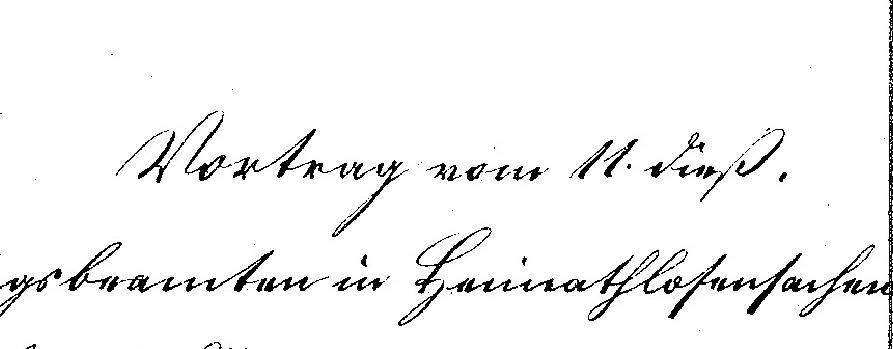 Vortrag vom 11. dieß.
gsbeamten in Heimathlosensachen